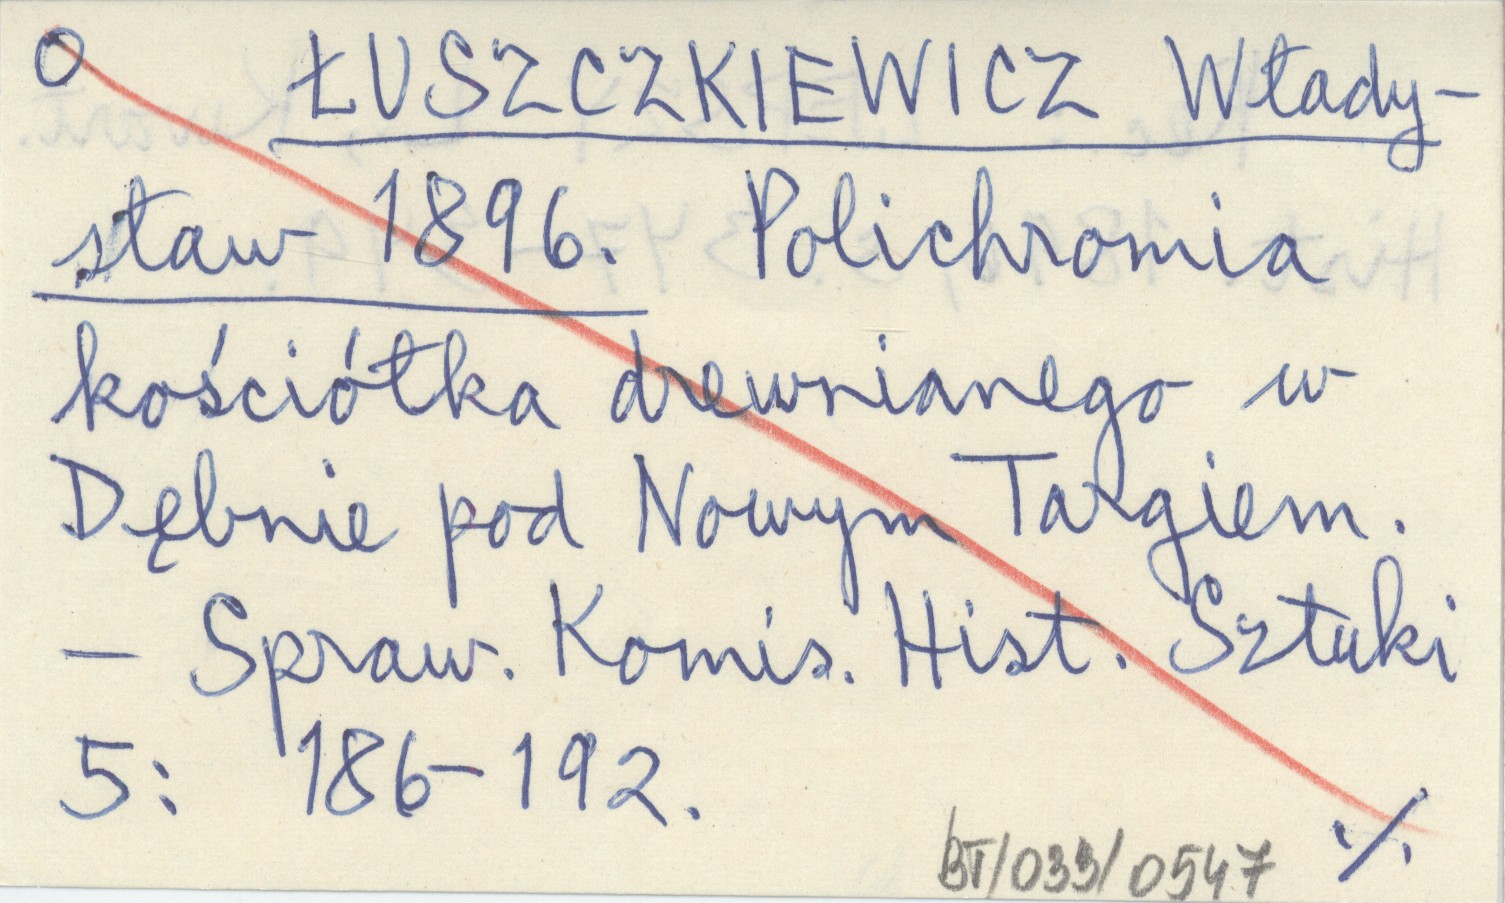 O ŁUSZCZKIEWICZ Włady-
sław 1896. Polichromia
kościółka drewnianego w
Dębnie pod Nowym Targiem.
— Spraw. Komis. Hist. Sztuki
5: 186-192.
·/.
BT/033/0547